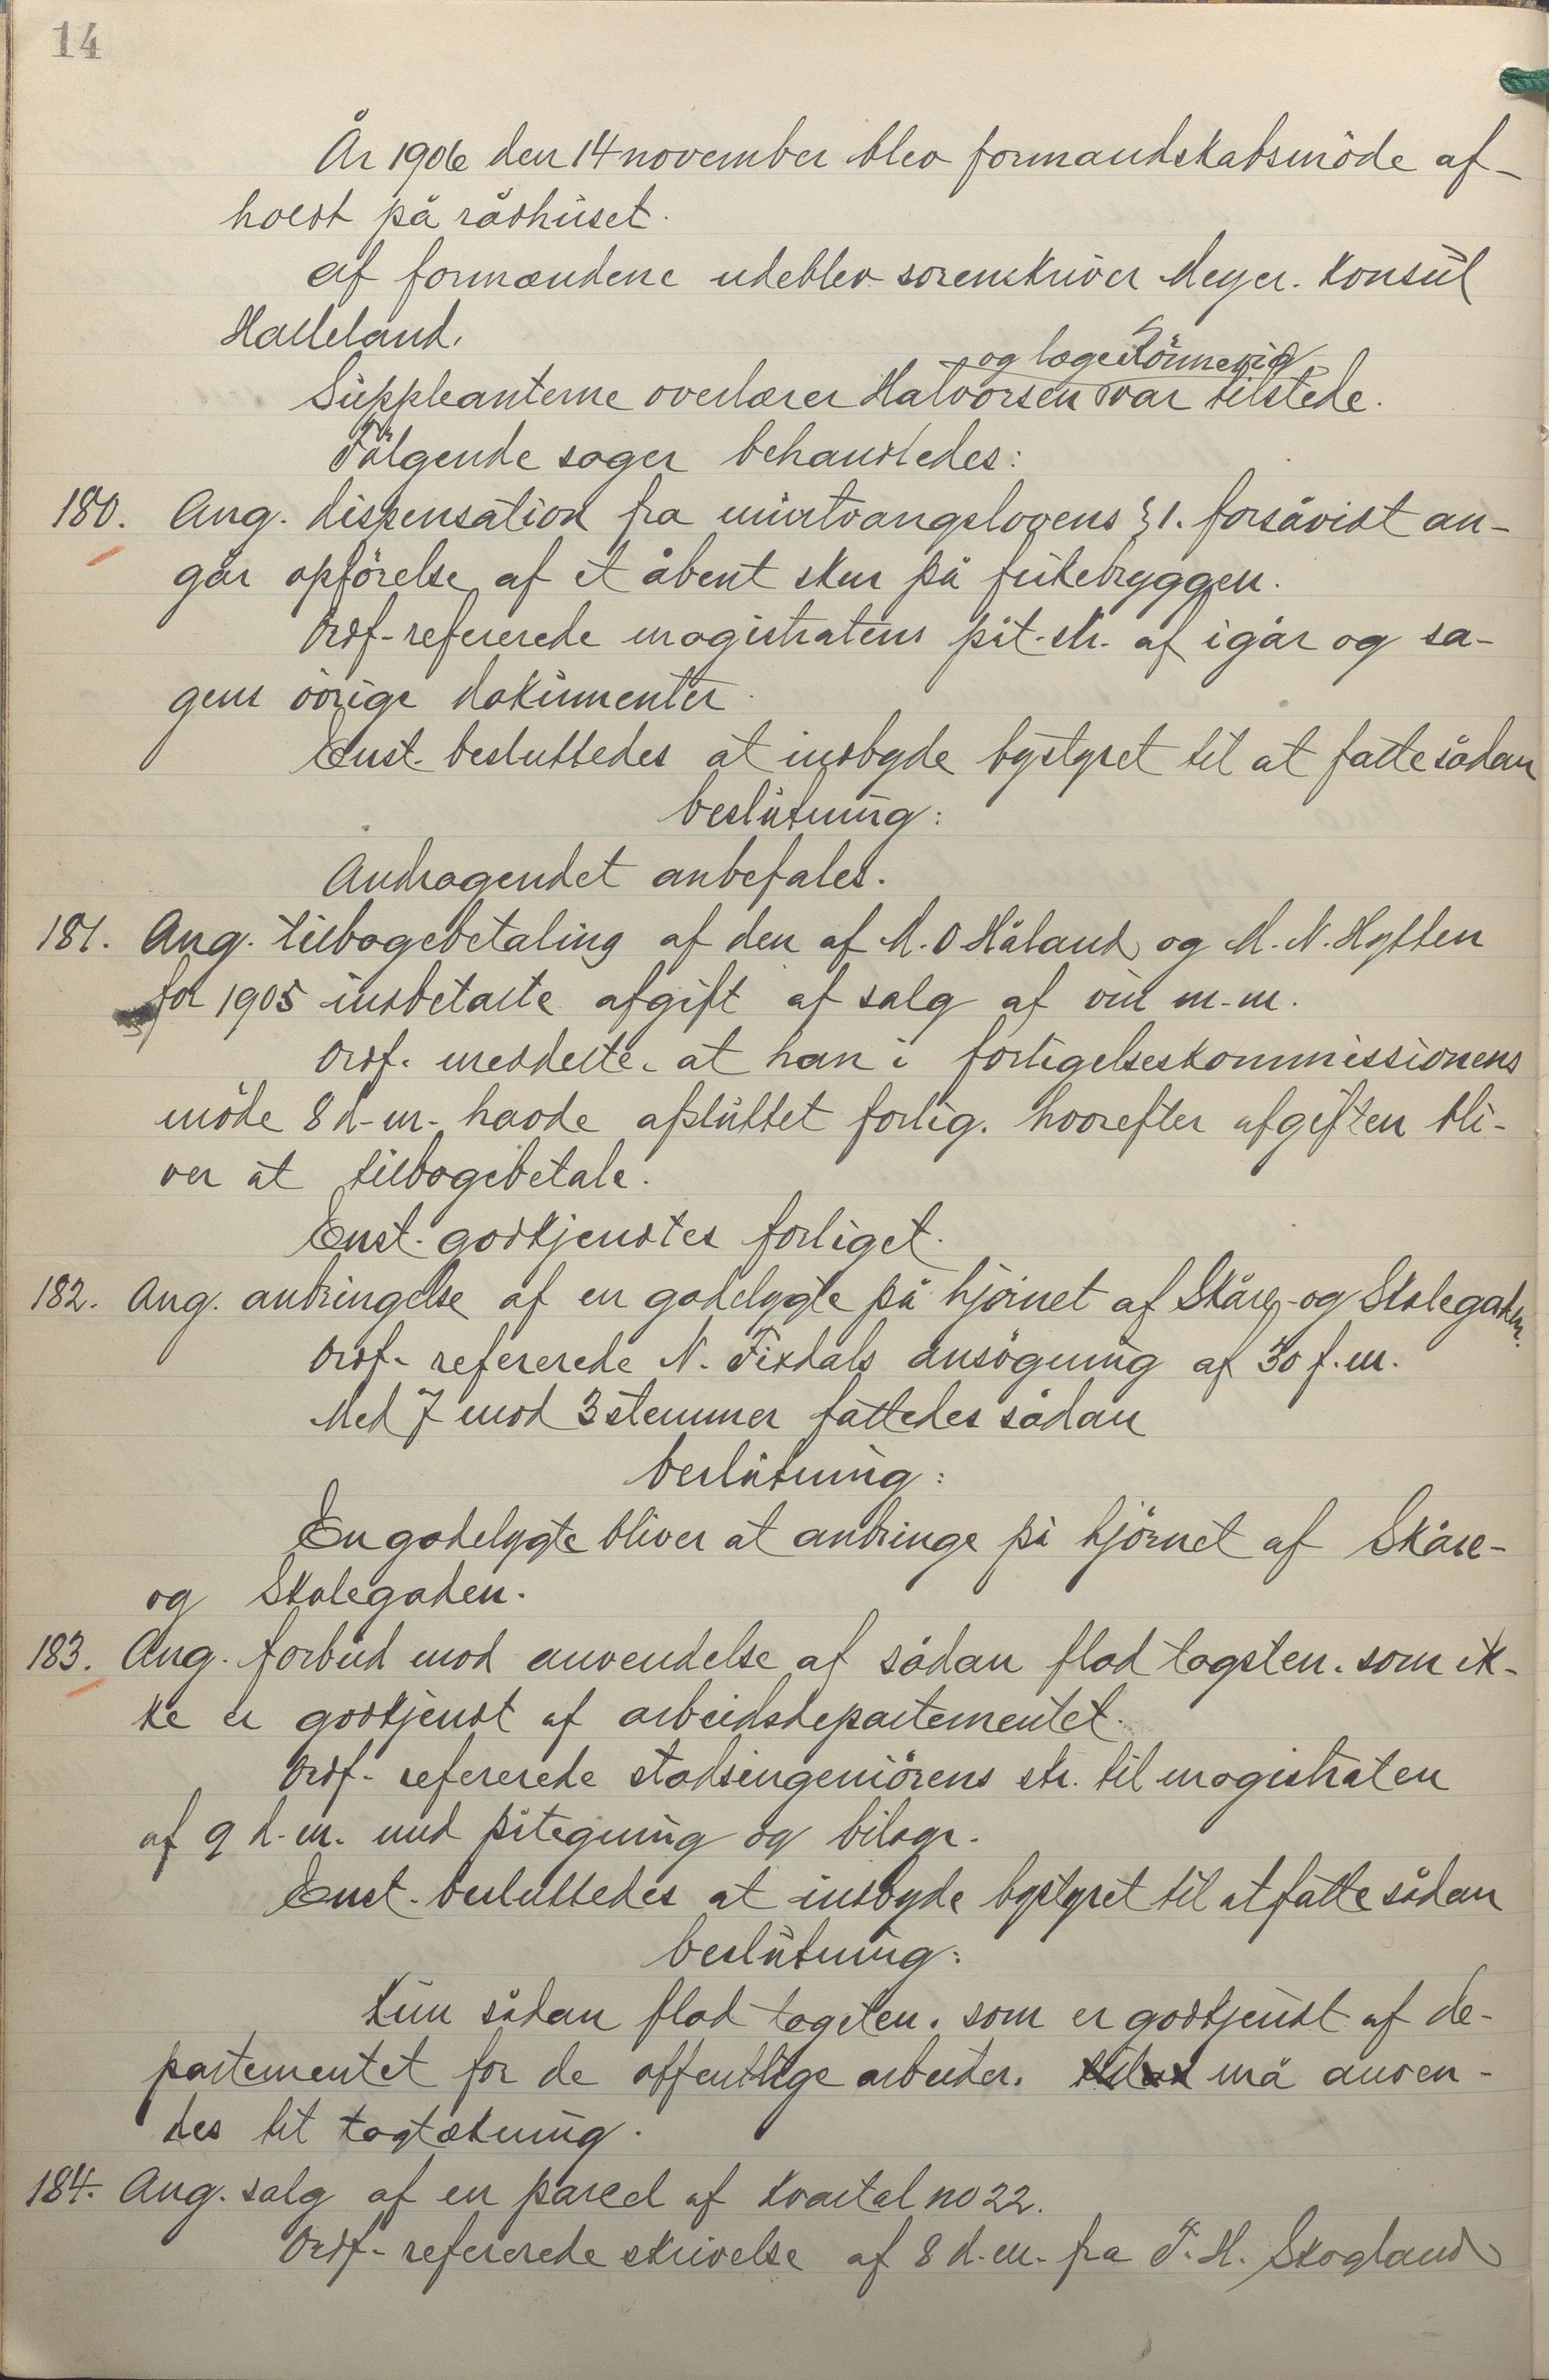 14
År 1906 den 14 november blev formandskabsmöde af-
holdt på rådhuset.
Af formændene udeblev sorenskriver Meyer. Konsul
Halleland.
og læge Sömme
Suppleanterne overlærer Halvorsen var tilstede.
Fölgende sager behandledes:
180. Ang. dispensation fra murtvangslovens § 1. forsåvidt an-
går opförelse af et åbent skur på feitebryggen.
Ordf. refererede magistratens påt. skr. af igår og sa-
gens övrige dokumenter.
Enst. besluttedes at indbyde bystyret til at fatte sådan
beslutning:
Andragendet anbefales.
181. Ang. tilbagebetaling af den af M. O Håland og M. N. Hytten
for 1905 indbetalte afgift af salg af vin m.m.
Ordf. meddelte. at han i forligelseskommissionens
möde 8 d.m. havde afsluttet forlig. hvorefter afgiften bli-
ver at tilbagebetale.
Enst. godkjendtes forliget.
182. Ang. anbringelse af en gadelygte på hjörnet af Skåre- og Skolegaden.
Ordf. refererede N. Fixdals ansögning af 30 f.m.
Med 7 mod 3 stemmer fattedes sådan
beslutning:
En gadelygte bliver at anbringe på hjörnet af Skåre-
og Skolegaden.
183. Ang. forbud mod anvendelse af sådan flad tagsten. som ik-
ke er godkjendt af arbeidsdepartementet.
Ordf. refererede stadsingeniörens skr. til magistraten
af 9 d.m. med påtegning og bilage.
Enst. besluttedes at indbyde bystyret til at fatte sådan
beslutning:
Kun sådan flad tagsten. som er godkjendt af de-
partementet for de offentlige arbeider. må anven-
des til tagtækning.
184. Ang. salg af en parcel af kvartal no 22.
Ordf. refererede skrivelse af 8 d.m. fra T. H. Skogland